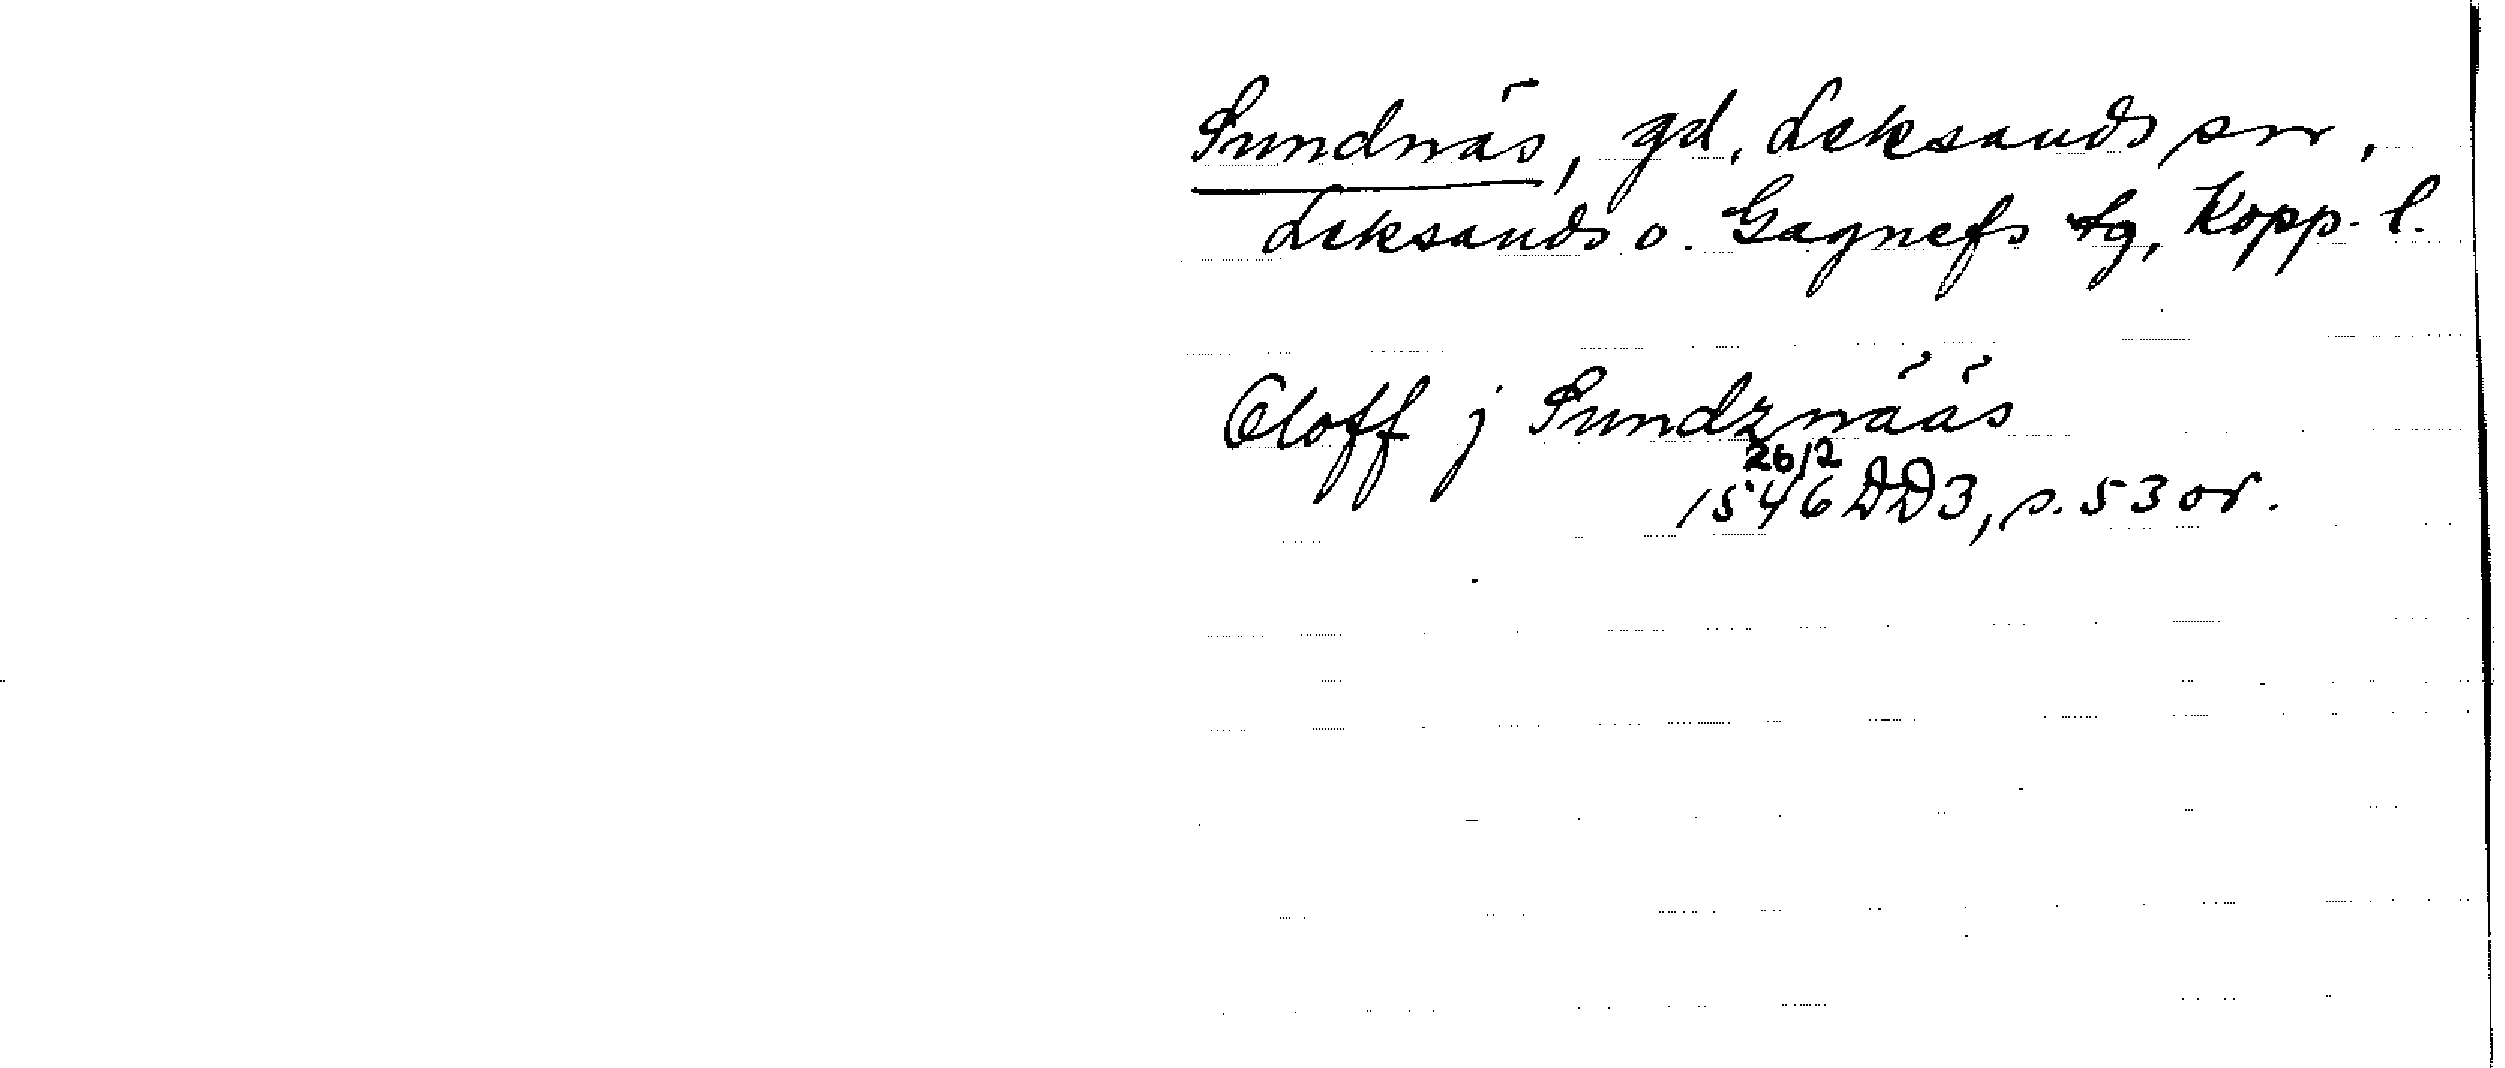 Sundnäs, gd, Leksands sn,
Leksands o. Gagnefs tg, Kopp. l.
Oloff j Sundznääs
26/2
1546 DD3, s. 53 or.